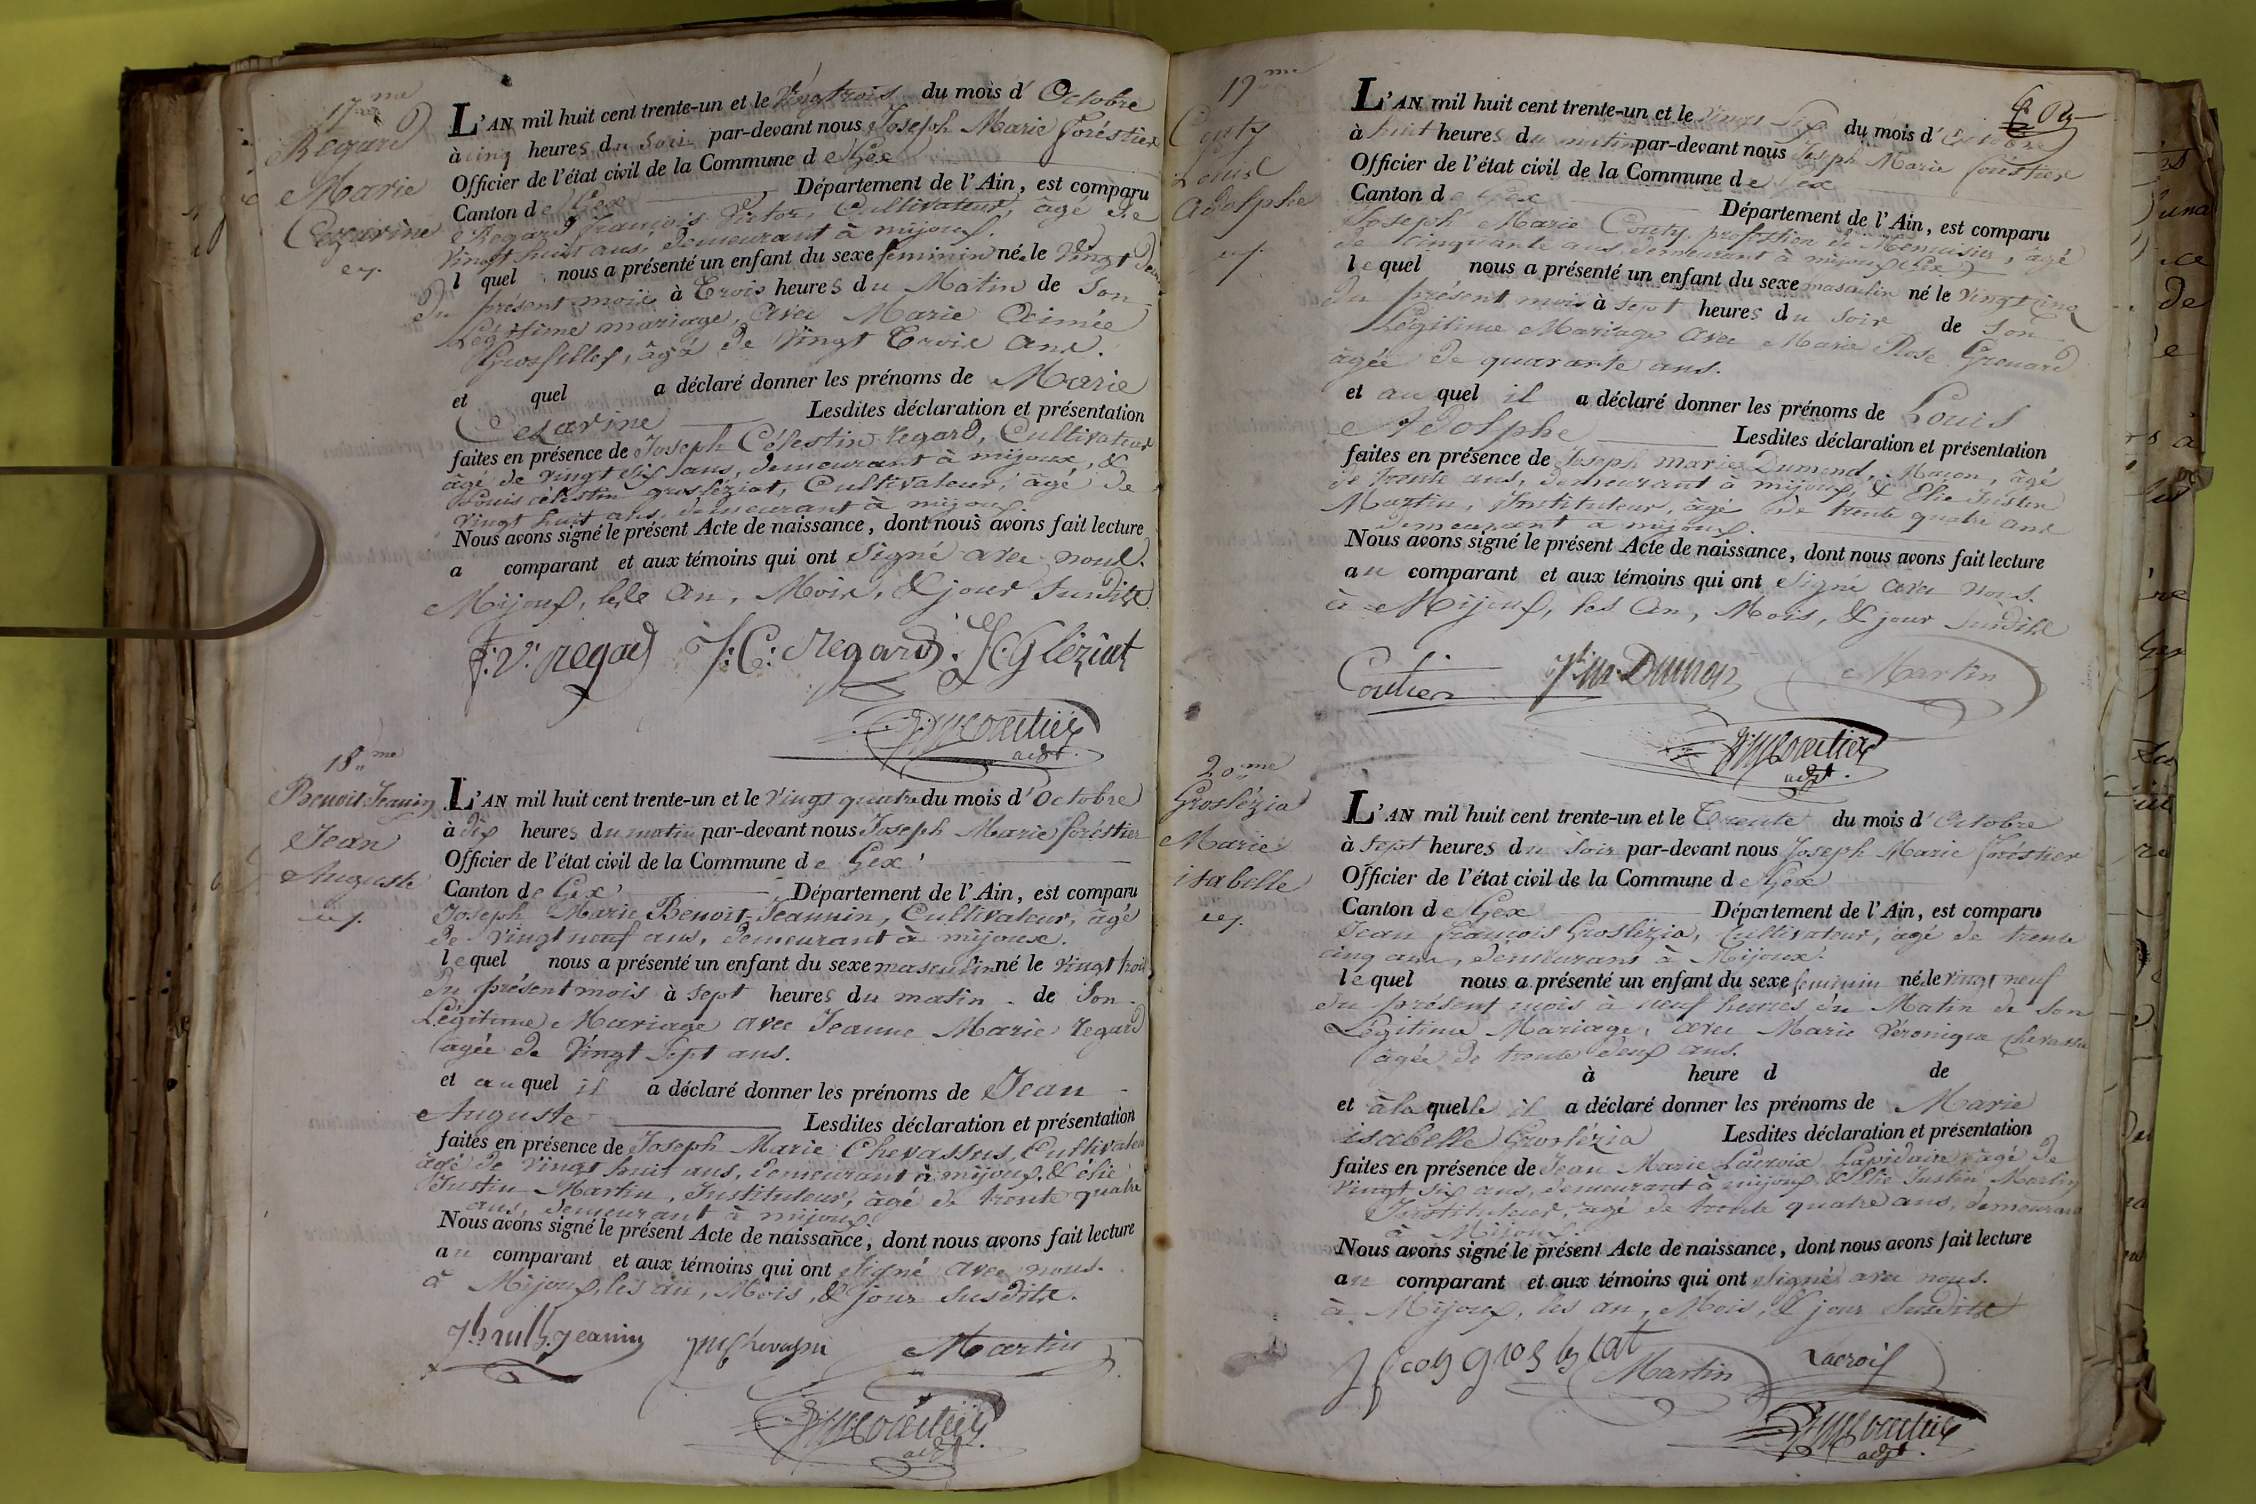 17me
Regard
Marie
Cezarine
L'AN mil huit cent trente-un et le Vingt trois du mois d'Octobre
à cinq heures du Soir par-devant nous Joseph Marie foréstier
Officier de l'état civil de la Commune de Gex
Canton de Gex Département de l'Ain, est comparu
Regard françois Victor, Cultivateur, âgé de
Vingt huit ans, demeurant à mijoux.
lequel nous a présenté un enfant du sexe feminin née le Vingt deux
du présent mois à Trois heures du Matin de Son
Légitime mariage, avec Marie Aimée
Grosfilley, âgé de Vingt Trois Ans.
et quel a déclaré donner les prénoms de Marie
Cezarine Lesdites déclaration et présentation
faites en présence de Joseph Célestin regard, Cultivateur
âgé de vingt six ans, demeurant à mijoux, &
Louis célestin grosléziat, Cultivateur, âgé de
vingt huit ans, demeurant à mijoux.
Nous avons signé le présent Acte de naissance, dont nous avons fait lecture
a comparant et aux témoins qui ont signé avec nous.
Mijoux, les An, Mois, & jour Susdits.
f: V: regard J: C: regard. L C Gléziat
JM Forestier
adjt
18me
Benoit Jeanin
Jean
Auguste
L'AN mil huit cent trente-un et le Vingt quatre du mois d'Octobre
à dix heures du matin par-devant nous Joseph Marie foréstier
Officier de l'état civil de la Commune de Gex
Canton de Gex Département de l'Ain, est comparu
Joseph Marie Benoit-Jeannin, Cultivateur, âgé
de Vingt neuf ans, demeurant à mijoux.
lequel nous a présenté un enfant du sexe masculin né le Vingt trois
du présent mois à sept heures du matin de Son
Légitime Mariage avec Jeanne Marie regard
âgée de Vingt Sept ans.
et au quel il a déclaré donner les prénoms de Jean
Auguste Lesdites déclaration et présentation
faites en présence de Joseph Marie Chevassus, Cultivateur
âgé de Vingt huit ans, demeurant à mijoux, & élie
Justin Martin, Instituteur, âgé de trente quatre
ans, demeurant à mijoux.
Nous avons signé le présent Acte de naissance, dont nous avons fait lecture
au comparant et aux témoins qui ont signé avec nous.
à Mijoux, les an, Mois, & jour susdits.
Jeanin JM Chevassu Martin
JM Forestier
adjt.
19me
Couty
Louis
Adolphe
L'AN mil huit cent trente-un et le Vingt Six du mois d'Octobre
à huit heures du matin par-devant nous Joseph Marie foréstier
Officier de l'état civil de la Commune de Gex
Canton de Gex Département de l'Ain, est comparu
Joseph Marie Couty, profession de Menuisier, âgé
de cinquante ans demeurant à mijoux (Gex)
lequel nous a présenté un enfant du sexe masculin né le Vingt cinq
du présent mois à sept heures du Soir de Son
Légitime Mariage avec Marie Rose Grenard
âgée de quarante ans.
et au quel il a déclaré donner les prénoms de Louis
Adolphe Lesdites déclaration et présentation
faites en présence de Joseph marie Dumond, Maçon, âgé
de trente ans, demeurant à mijoux, & Elie Justin
Martin, Instituteur, âgé de trente quatre ans
demeurant à mijoux.
Nous avons signé le présent Acte de naissance, dont nous avons fait lecture
au comparant et aux témoins qui ont signé avec nous.
à Mijoux, les An, Mois, & jour Susdits
Coutier Jh M Dumon Martin
JM Forestier
adjt.
20me
Groslézia
Marie
isabelle
L'AN mil huit cent trente-un et le Trente du mois d'Octobre
à Sept heures du Soir par-devant nous Joseph Marie foréstier
Officier de l'état civil de la Commune de Gex
Canton de Gex Département de l'Ain, est comparu
Jean françois Groslézia, Cultivateur, âgé de trente
cinq ans, demeurant à Mijoux.
lequel nous a présenté un enfant du sexe feminin née le vingt neuf
du présent mois à neuf heures du Matin de Son
Légitime Mariage, avec Marie Véronique Chevassu
âgée de trente deux ans.
à heure d de
et à la quelle il a déclaré donner les prénoms de Marie
isabelle Groslézia Lesdites déclaration et présentation
faites en présence de Jean Marie Lacroix Lapidaire, âgé de
vingt six ans, demeurant à mijoux, & Elie Justin Martin
Instituteur, âgé de trente quatre ans, demeurant
à Mijoux.
Nous avons signé le présent Acte de naissance, dont nous avons fait lecture
au comparant et aux témoins qui ont signé avec nous.
à Mijoux, les an, Mois, & jour Susdits
Martin Lacroix
JM Forestier
adjt.